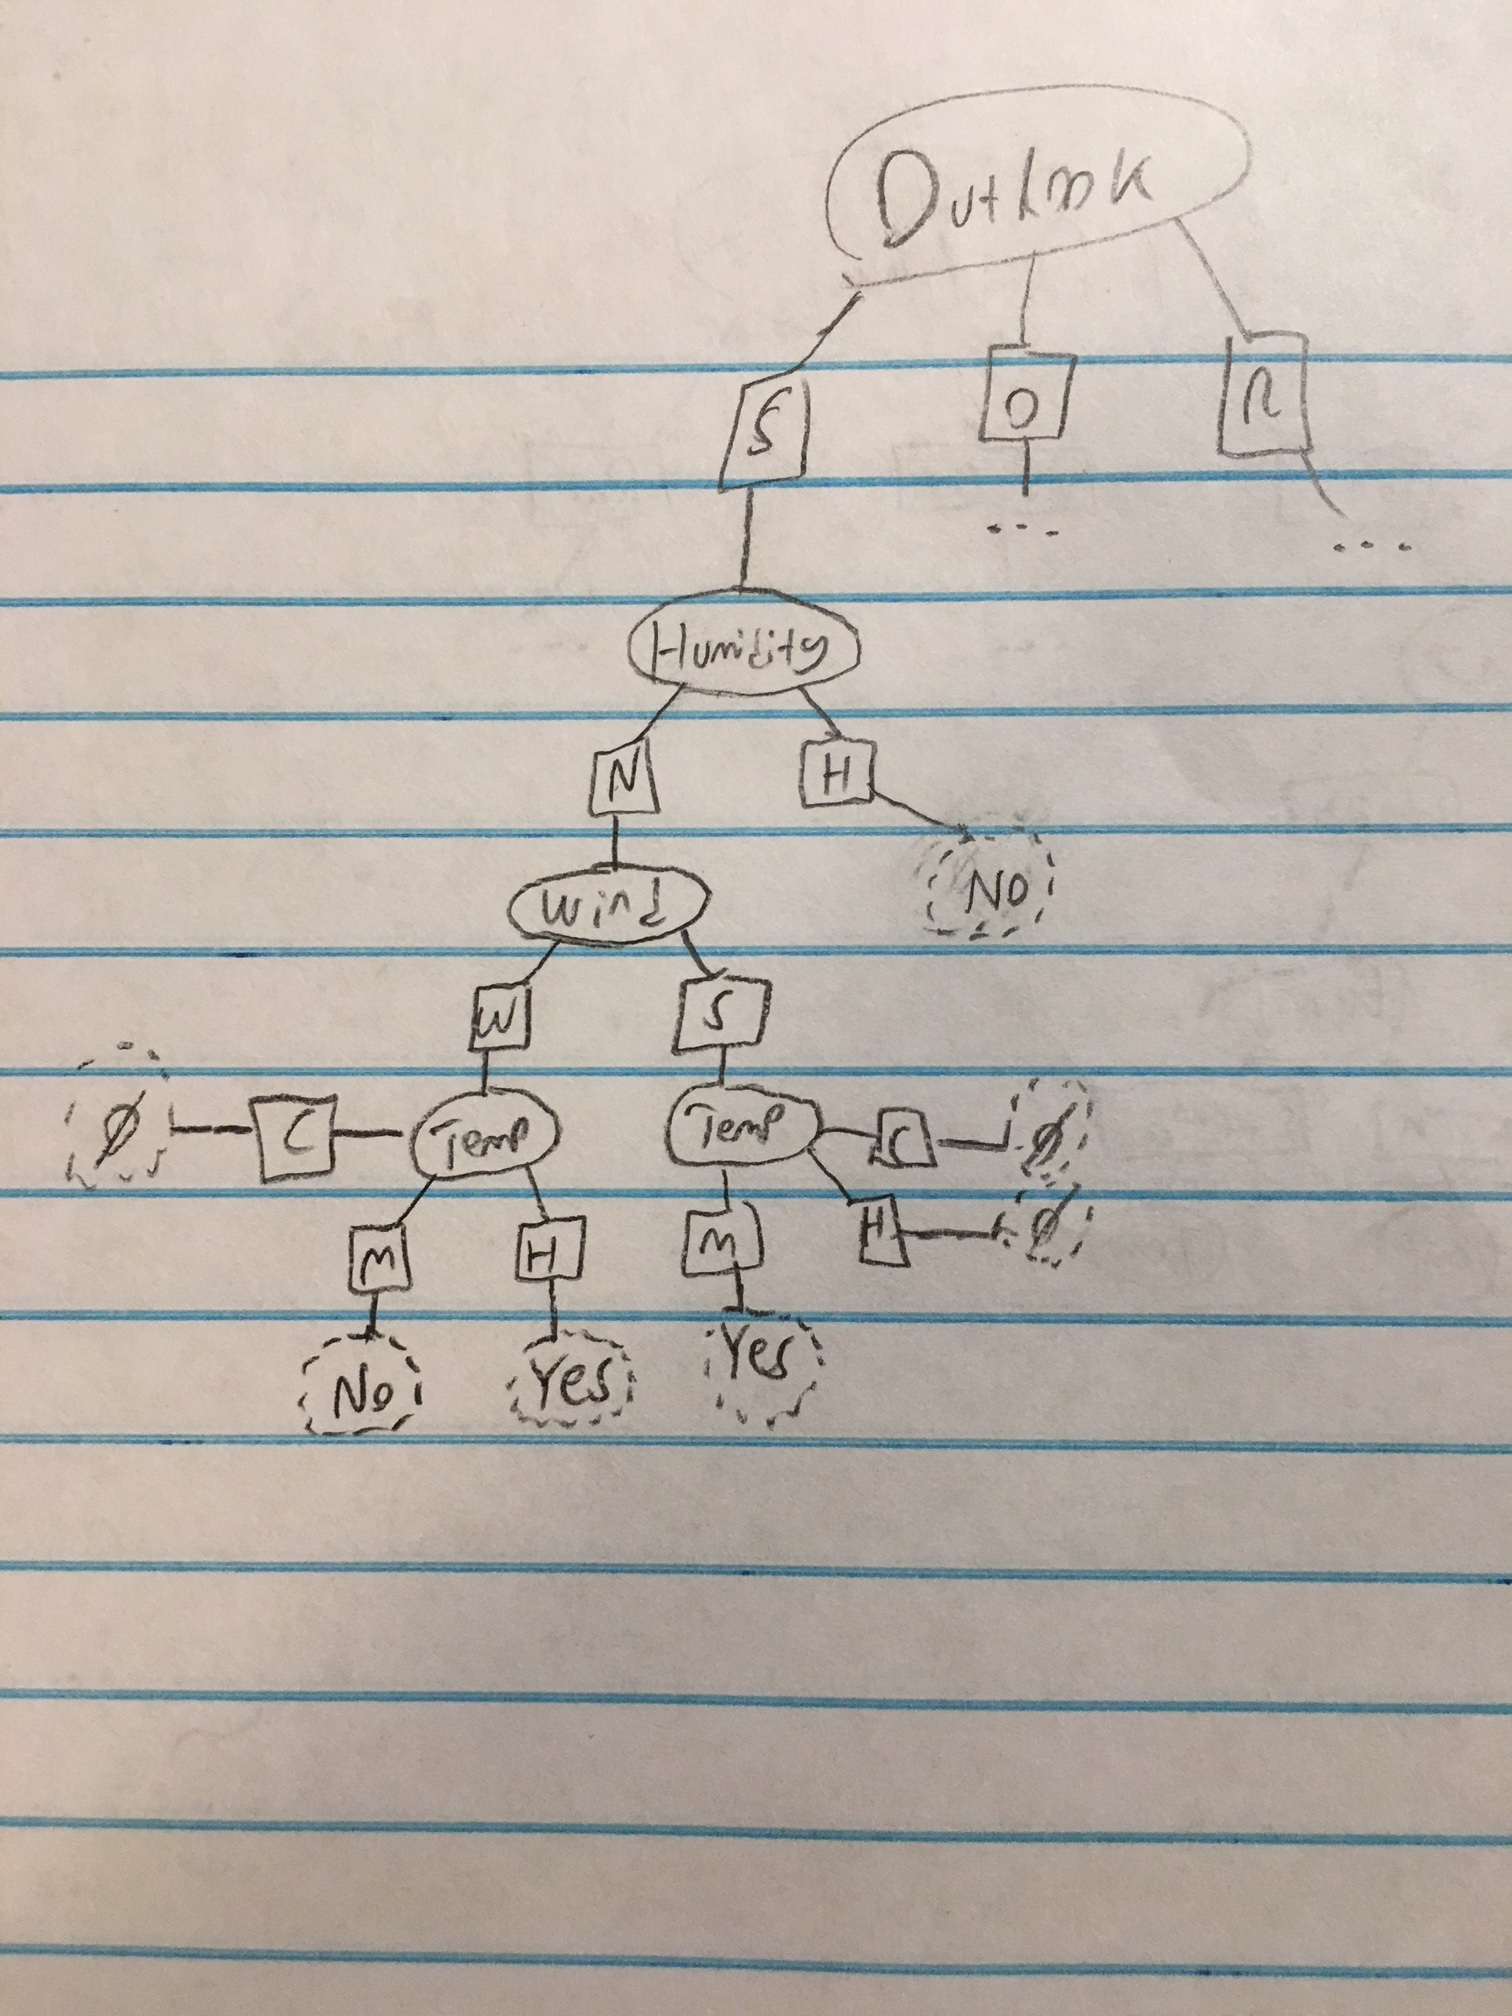 Outlook
S O R
... ...
Humidity
N H
Wind No
W S
Ø C Temp Temp C Ø
M H M H Ø
No Yes Yes